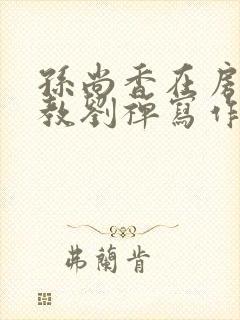 孫尚香在房
教劉禪寫作
弗蘭肯